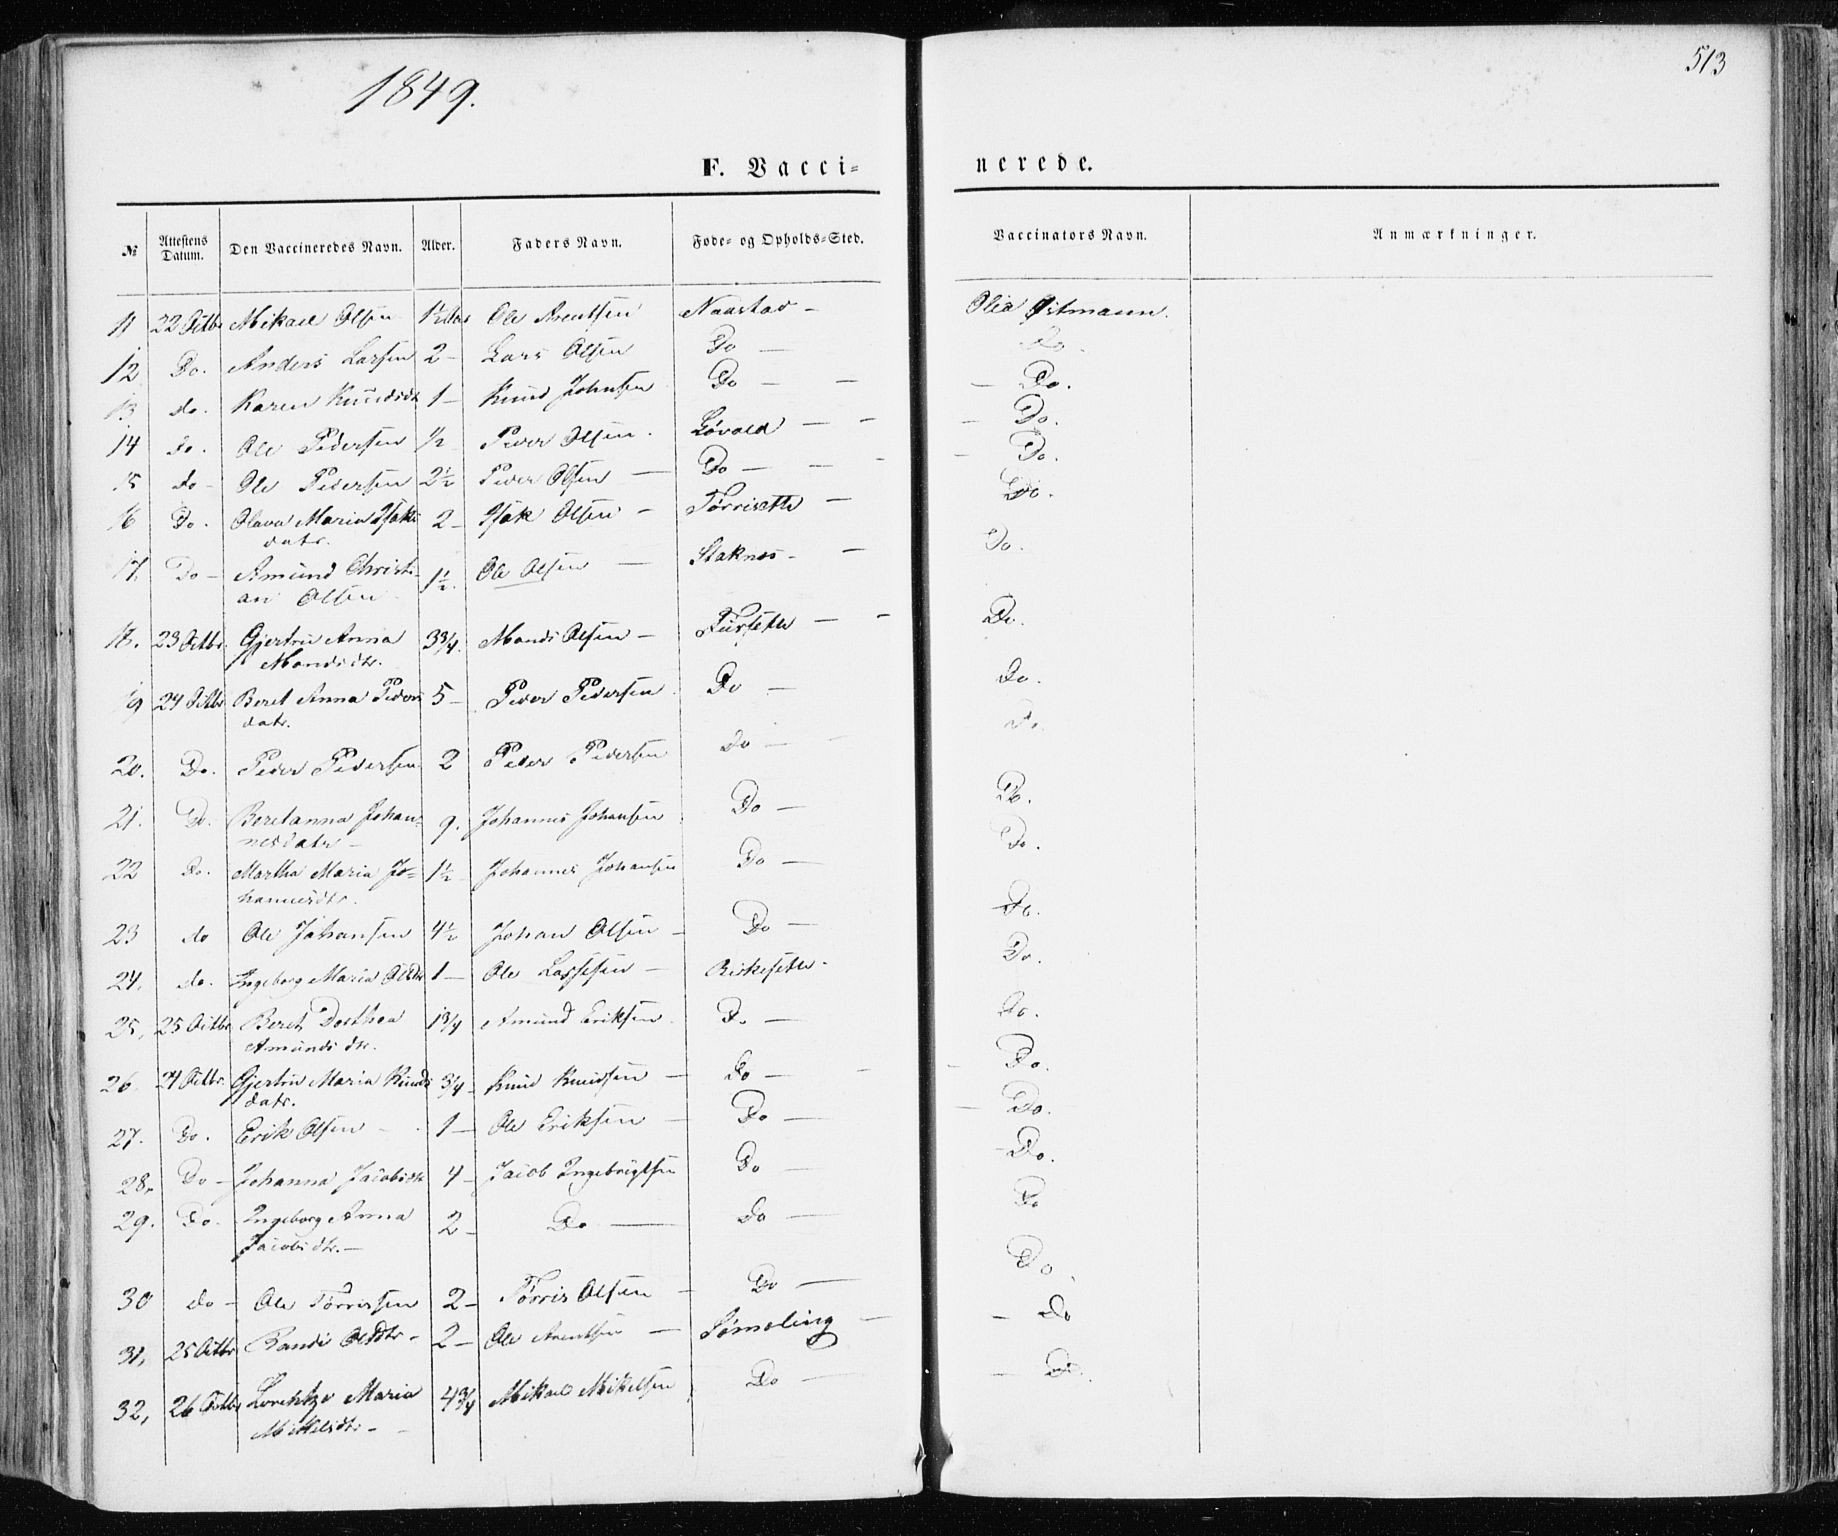 513
1849.
F. Vacci-
nerede.
№ Attestens Datum. Den Vaccineredes Navn. Alder. Faders Navn. Føde- og Opholds-Sted. Vaccinators Navn. Anmærkninger.
11 22 Octbr Mikael Olsen 1½ Ole Arentsen Naastad - Olia Østmann.
12 Do. Anders Larsen 2 - Lars Olsen Do - do.
13 do. Karen Knudsdtr 1 - Knud Johnsen Do - - - Do.
14 do. Ole Pedersen ½ Peder Olsen. Løvold - - - Do.
15 do - Ole Pedersen 2½ Peder Olsen - Do - - - - Do.
16 Do. Olava Maria Isaks 2 - Isak Olsen - Tørrisetle - Do.
datr.
17, Do - Amund Christi- 1½. Ole Olsen - Staknes - - Do.
an Olsen
18. 23 Octbr. Gjertru Anna 3¾. Monds Olsen - Fursetle - - Do.
Monds dtr.
19 24 Octbr Beret Anna Peders 5 - Peder Pedersen Do - Do.
datr.
20. Do. Peder Pedersen 2 Peder Pedersen Do - - Do.
21. Do. Beretanna Johan- 9. Johannes Johansen Do - Do.
nesdatr -
22 Do. Martha Maria Jo- 1½ - Johannes Johansen Do - Do.
hannesdtr.
23 do Ole Johansen 4½ Johan Olsen - Do - Do.
24, do. Ingeborg Maria Olsdtr 1 - Ole Lassesen - Birkesetle - Do.
25, 25 Octbr Beret Dorthea 1¾ Amund Eriksen. Do - Do.
Amunds dtr.
26. 24 Octbr. Gjertru Maria Knuds ¾ - Knud Knudsen - Do - - - Do.
datr.
27. Do. Erik Olsen - 1 - Ole Eriksen - Do - - Do.
28, Do - Johanna Jacobsdtr 4 - Jacob Ingebrigtsen Do - - Do.
29. Do. Ingeborg Anna 2 - Do - Do - Do
Jacobsdtr. -
30 do - Ole Tørrissen 2 - Tørris Olsen - Do - Do.
31, 25 Octbr Randi Olsdtr - 2 - Ole Arentsen - Sømoling - - Do
32, 26 Octbr Lorentze Maria 4¾ Mikael Mikelsen Do - - Do.
Mikkelsdtr -